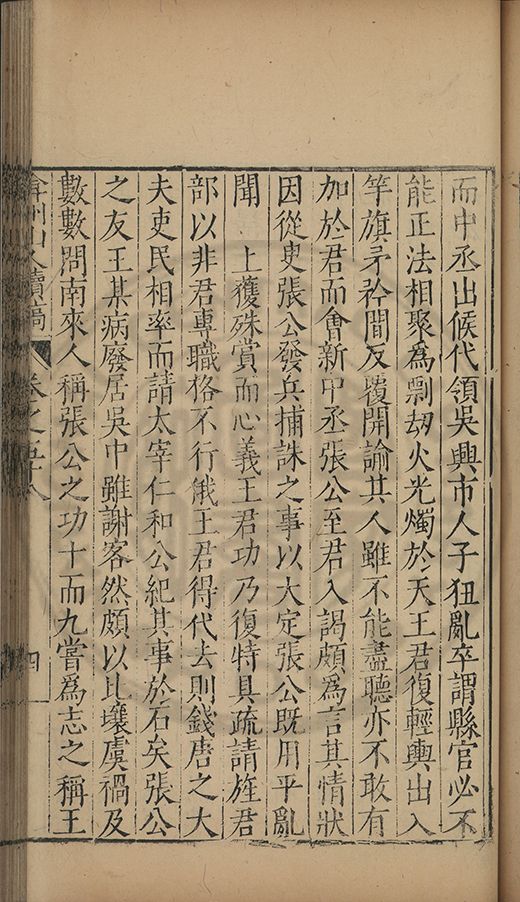 而中丞出候代領吳興市人子狂亂卒謂縣官必不
能正法相聚爲剽刼火光燭於天王君復輕輿出入
竿旗矛矜間反覆開諭其人雖不能盡聽亦不敢有
加於君而會新中丞張公至君入謁頗爲言其情狀
因從臾張公發兵捕誅之事以大定張公旣用平亂
聞　上獲殊賞而心義王君功乃復特具疏請旌君
部以非君專職格不行俄王君得代去則錢唐之大
夫吏民相率而請太宰仁和公紀其事於石矣張公
之友王某病廢居吳中雖謝客然頗以比壤虞禍及
數數問南來人稱張公之功十而九嘗爲志之稱王
弇州山人續稿　卷之五十八　四